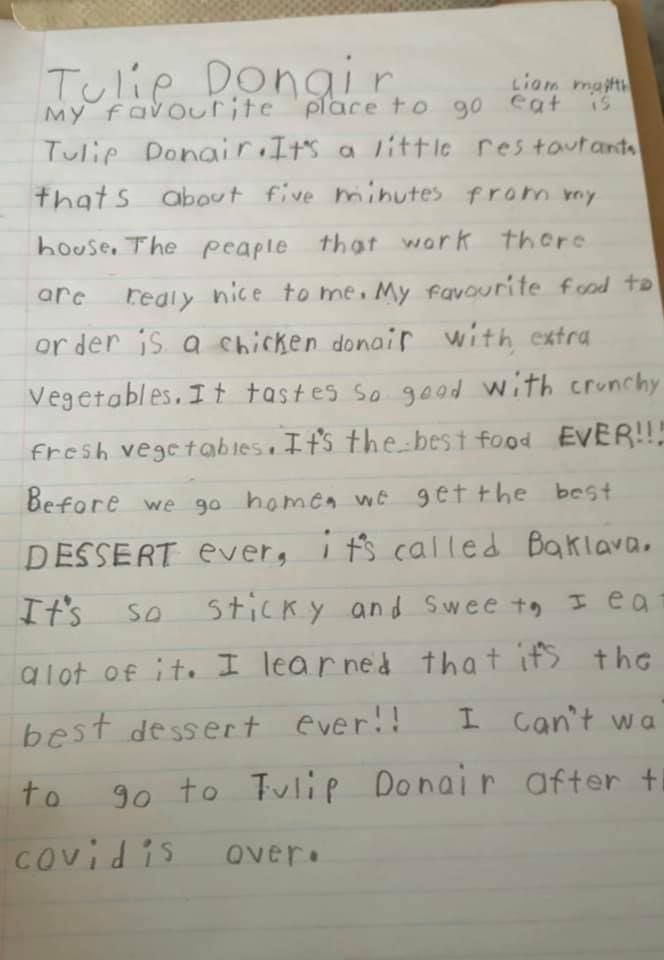 Tulip Donair
Liam
My favourite place to go eat is
Tulip Donair. It's a little restaurant,
thats about five minutes from my
house. The people that work there
are realy nice to me. My favourite food to
order is a chicken donair with extra
vegetables. It tastes so good with crunchy
fresh vegetables. It's the best food EVER!!!
Before we go home, we get the best
DESSERT ever, it's called Baklava.
It's so sticky and sweet, I eat
alot of it. I learned that it's the
best dessert ever!! I can't wa
to go to Tulip Donair after
covid is over.